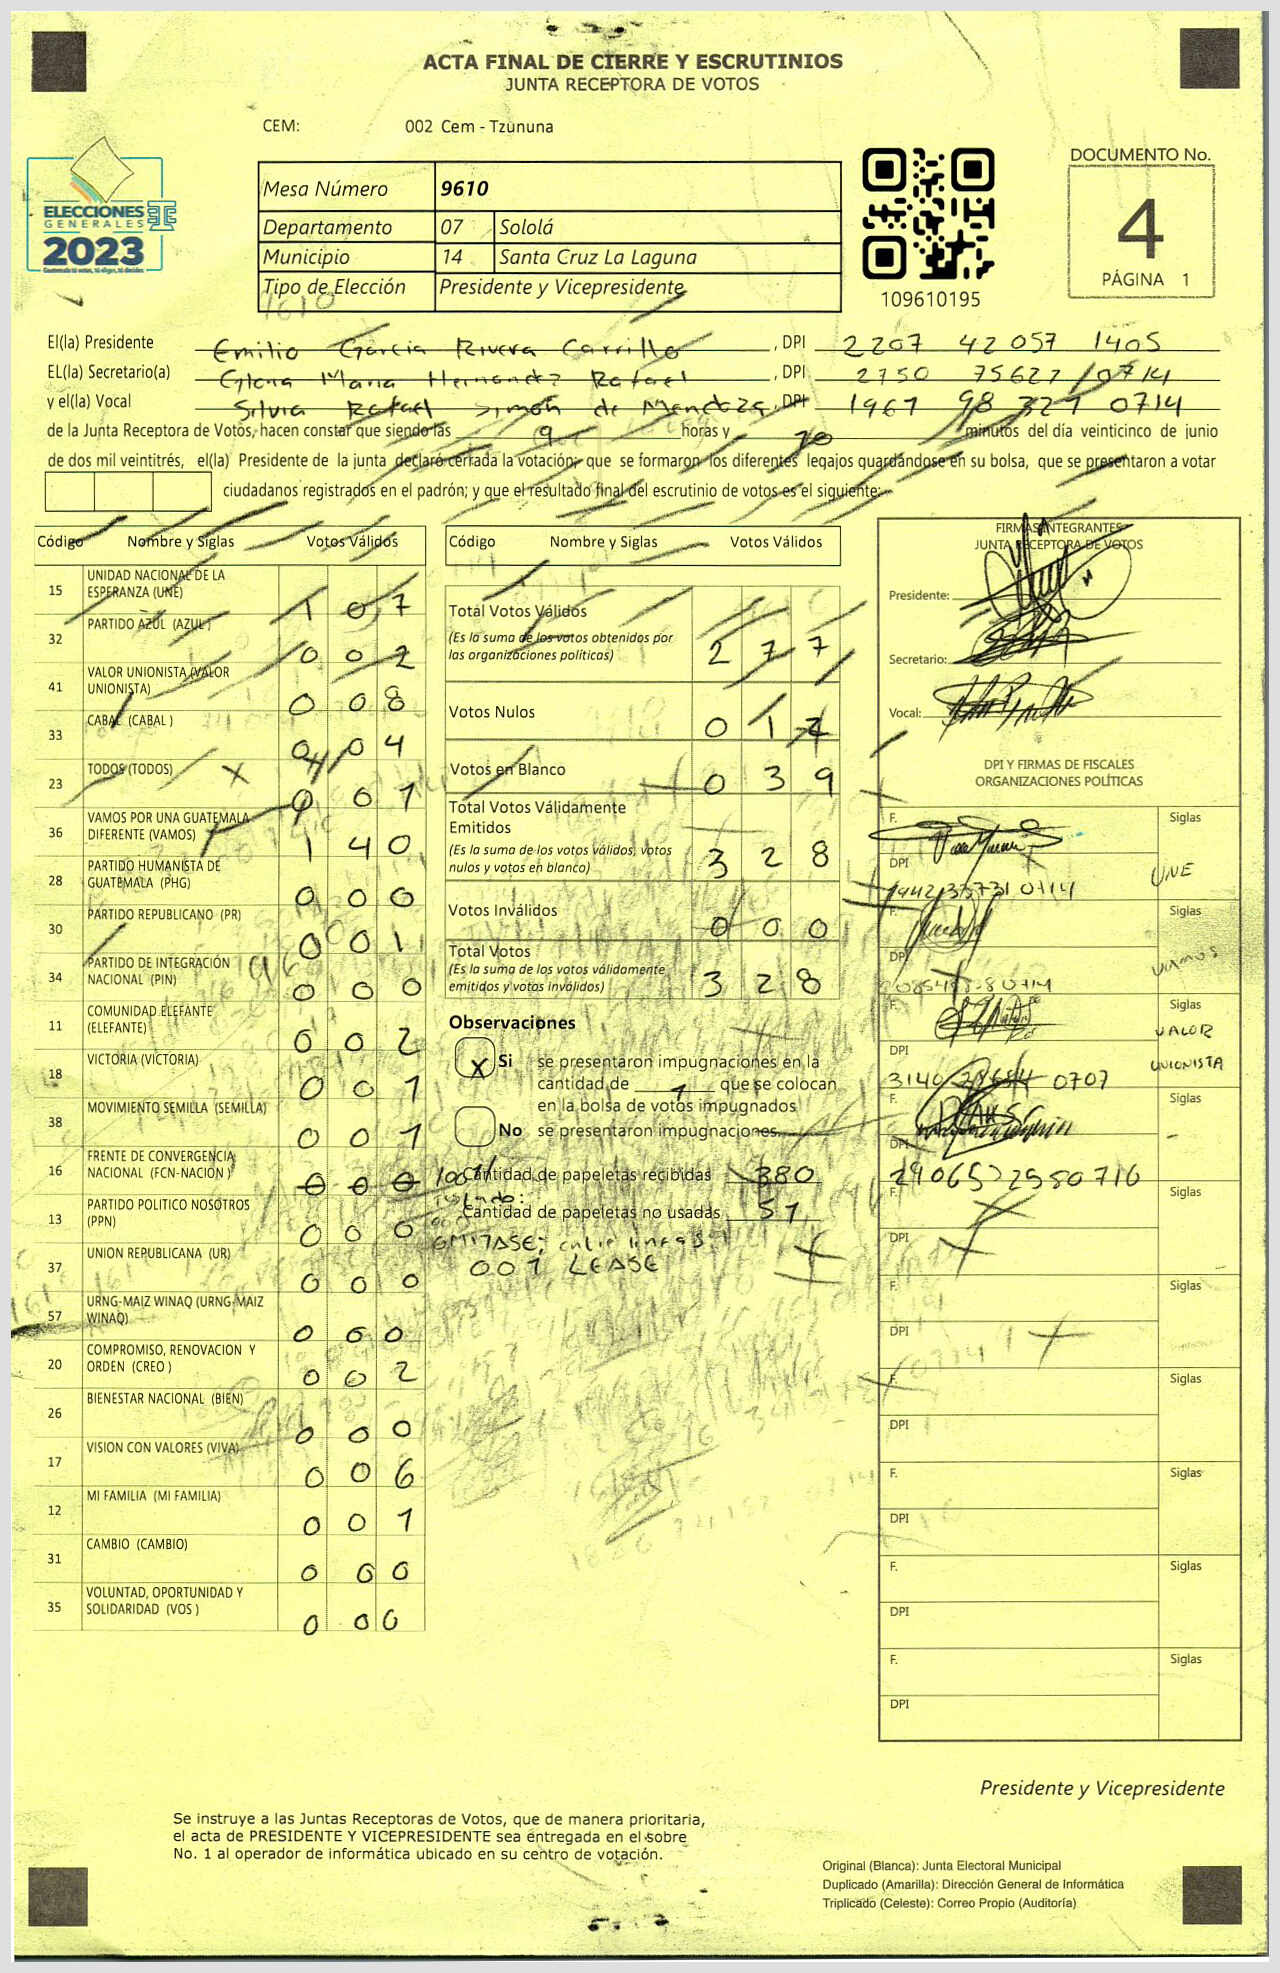 ACTA FINAL DE CIERRE Y ESCRUTINIOS
JUNTA RECEPTORA DE VOTOS
CEM: 002 Cem - Tzununa
ELECCIONES
GENERALES
2023
Mesa Número 9610
Departamento 07 Sololá
Municipio 14 Santa Cruz La Laguna
Tipo de Elección Presidente y Vicepresidente
109610195
DOCUMENTO No.
4
PÁGINA 1
El(la) Presidente Emilio García Rivera Carrillo, DPI 2207 42057 1405
EL(la) Secretario(a) Maria Hernandez Rafael, DPI 2750 75627 0714
y el(la) Vocal Silvia Rafael Simón de Mendoza, DPI 1967 98 0714
de la Junta Receptora de Votos, hacen constar que siendo las 9 horas y minutos del día veinticinco de junio
de dos mil veintitrés, el(la) Presidente de la junta declaró cerrada la votación; que se formaron los diferentes legajos guardándose en su bolsa, que se presentaron a votar
ciudadanos registrados en el padrón; y que el resultado final del escrutinio de votos es el siguiente:
Código Nombre y Siglas Votos Válidos
15 UNIDAD NACIONAL DE LA ESPERANZA (UNE) 1 0 7
32 PARTIDO AZUL (AZUL) 0 0 2
41 VALOR UNIONISTA (VALOR UNIONISTA) 0 0 8
33 CABAL (CABAL ) 0 0 4
23 TODOS (TODOS) 0 0 1
36 VAMOS POR UNA GUATEMALA DIFERENTE (VAMOS) 1 4 0
28 PARTIDO HUMANISTA DE GUATEMALA (PHG) 0 0 0
30 PARTIDO REPUBLICANO (PR) 0 0 1
34 PARTIDO DE INTEGRACIÓN NACIONAL (PIN) 0 0 0
11 COMUNIDAD ELEFANTE (ELEFANTE) 0 0 2
18 VICTORIA (VICTORIA) 0 0 1
38 MOVIMIENTO SEMILLA (SEMILLA) 0 0 1
16 FRENTE DE CONVERGENCIA NACIONAL (FCN-NACION ) 0 0 0
13 PARTIDO POLITICO NOSOTROS (PPN) 0 0 0
37 UNION REPUBLICANA (UR) 0 0 0
57 URNG-MAIZ WINAQ (URNG-MAIZ WINAQ) 0 0 0
20 COMPROMISO, RENOVACION Y ORDEN (CREO ) 0 0 2
26 BIENESTAR NACIONAL (BIEN) 0 0 0
17 VISION CON VALORES (VIVA) 0 0 6
12 MI FAMILIA (MI FAMILIA) 0 0 1
31 CAMBIO (CAMBIO) 0 0 0
35 VOLUNTAD, OPORTUNIDAD Y SOLIDARIDAD (VOS ) 0 0 0
Código Nombre y Siglas Votos Válidos
Total Votos Válidos 2 7 7
(Es la suma de los votos obtenidos por
las organizaciones políticas)
Votos Nulos 0 1
Votos en Blanco 0 3 9
Total Votos Válidamente
Emitidos 3 2 8
(Es la suma de los votos válidos, votos
nulos y votos en blanco)
Votos Inválidos 0 0 0
Total Votos 3 2 8
(Es la suma de los votos válidamente
emitidos y votos inválidos)
Observaciones
X Si se presentaron impugnaciones en la
cantidad de 1 que se colocan
en la bolsa de votos impugnados
No se presentaron impugnaciones
Cantidad de papeletas recibidas 380
Cantidad de papeletas no usadas 51
OMITASE; entre lineas
001 LEASE
FIRMAS INTEGRANTES
JUNTA RECEPTORA DE VOTOS
Presidente:
Secretario:
Vocal:
DPI Y FIRMAS DE FISCALES
ORGANIZACIONES POLÍTICAS
F. Siglas
DPI UNE
F. Siglas
DPI VAMOS
F. Siglas
DPI VALOR
UNIONISTA
3140 0707
F. Siglas
DPI
F. Siglas
DPI
F. Siglas
DPI
F. Siglas
DPI
F. Siglas
DPI
F. Siglas
DPI
F. Siglas
DPI
Presidente y Vicepresidente
Se instruye a las Juntas Receptoras de Votos, que de manera prioritaria,
el acta de PRESIDENTE Y VICEPRESIDENTE sea entregada en el sobre
No. 1 al operador de informática ubicado en su centro de votación.
Original (Blanca): Junta Electoral Municipal
Duplicado (Amarilla): Dirección General de Informática
Triplicado (Celeste): Correo Propio (Auditoría)